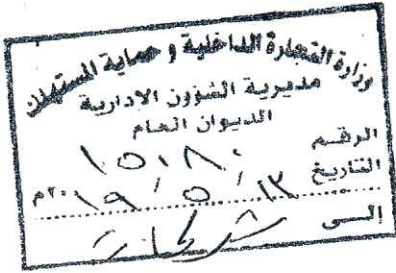 وزارة التجارة الداخلية و حماية المستهلك
مديرية الشؤون الادارية
الديوان العام
الرقم ١٥١٨٠
التاريخ ١٣ / ٥ / ٢٠١٩م
إلى شركات